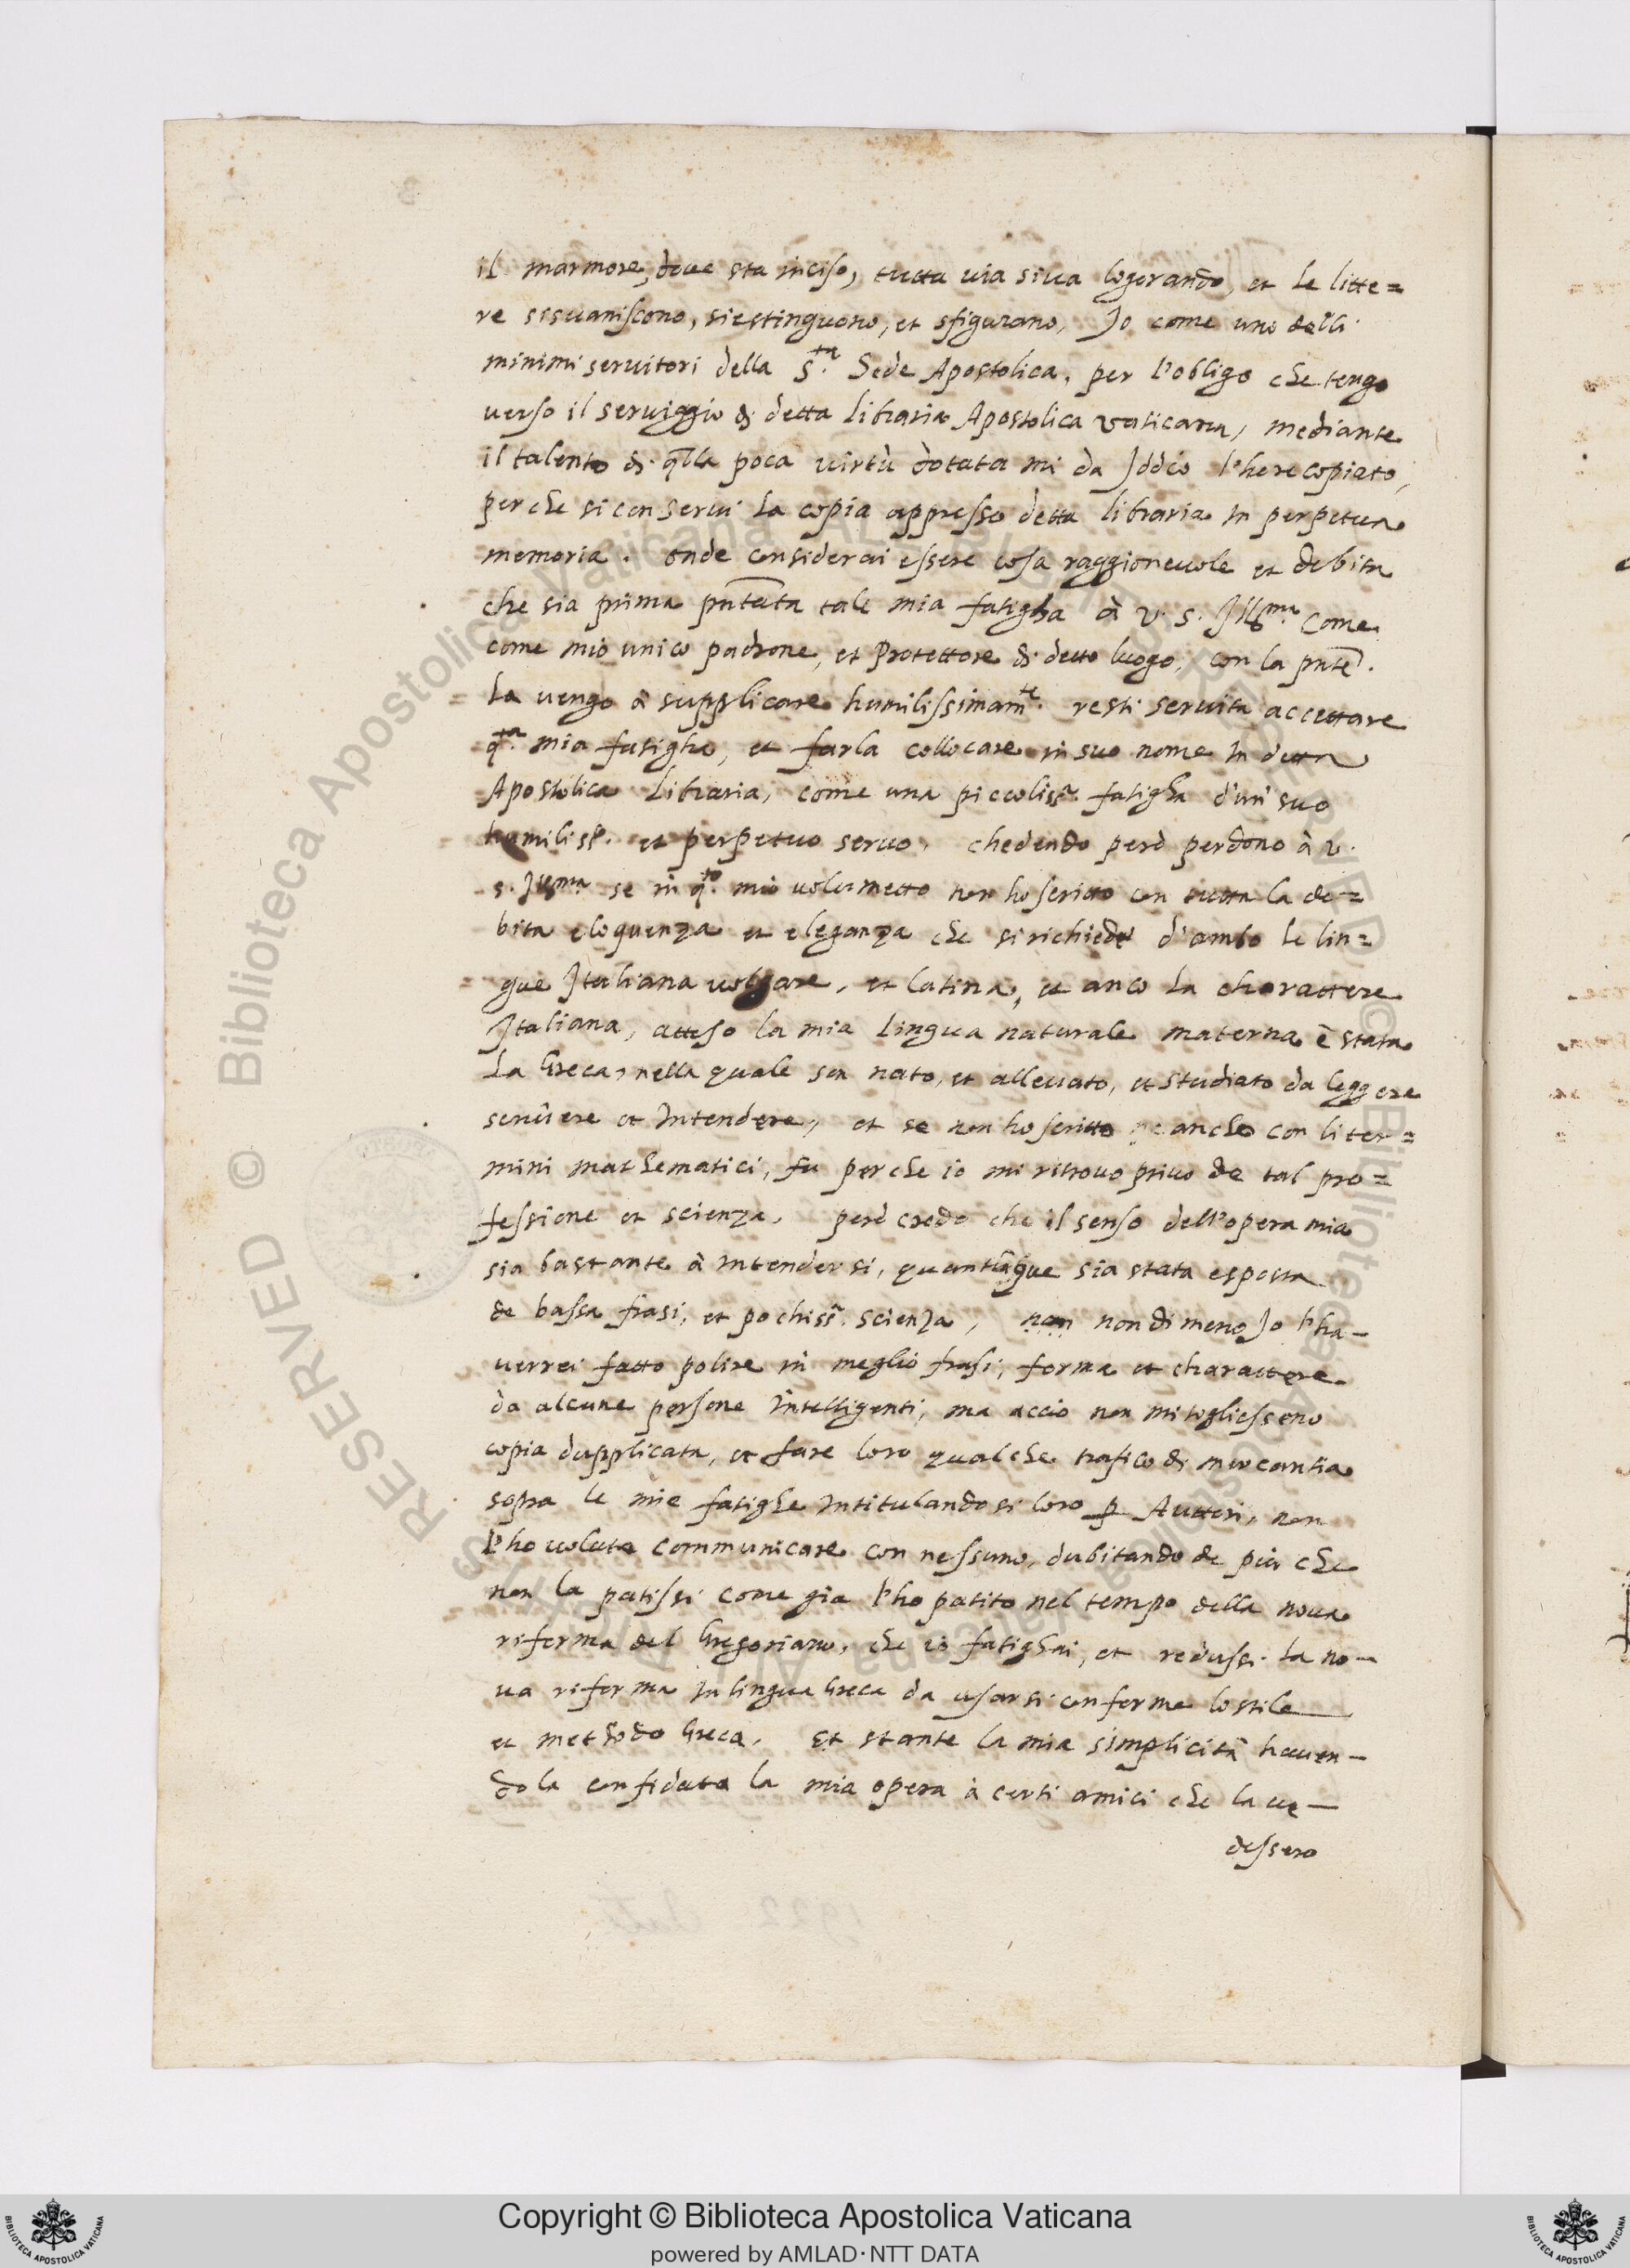 il marmore, doue sta inciso, tutta uia siua logorando, et le litte=
re sisuaniscono, siestinguono, et sfigurano, Io come uno delli
minimi seruitori della S.ta Sede Apostolica, per l'obligo che tengo
uerso il seruiggio di detta Libraria Apostolica Vaticana, mediante
il talento di q̃lla poca uirtù dotata mi da Iddio l'ho recopiato,
perche si conserui la copia appresso detta libraria in perpetua
memoria. onde considerai essere cosa raggioneuole et debita
che sia prima pñtata tale mia fatigha à V. S. Ill.ma come
come mio unico padrone, et Protettore di detto luogo, con la pñte.
La uengo à supplicare humilissimam.te resti seruita accettare
q.ta mia fatigha, et farla collocare in suo nome in detta
Apostolica Libraria, come una piccoliss.a fatigha d'un suo
humiliss.o et perpetuo seruo, chedendo però perdono à V.
S. Ill.ma se in q.to mio uolumetto non ho scritto con tutta la de=
bita eloquenza et eleganza che si richiede d'ambo le lin=
gue Italiana uolgare, et latina, et anco la charattere
Italiana, atteso la mia lingua naturale materna è stata
La Greca, nella quale son nato, et alleuato, et studiato da leggere
scriuere et intendere, et se non ho scritto anche con li ter=
mini mathematici, fu perche io mi ritrouo priuo de tal pro=
fessione et scienza, però credo che il senso dell'opera mia
sia bastante à intendersi, quantũque sia stata esposta
de bassa frasi, et pochiss.a scienza, non nondimeno Io l'ha-
uerrei fatto polire in meglio frasi, forma et charattere
da alcune persone intelligenti, ma accio non mi togliesseno
copia dupplicata, et fare loro qualche trafico di mercantia
sopra le mie fatighe intitulandosi loro ꝑ Auttori, non
l'ho uoluta communicare con nessuno, dubitando de più che
non la patissi come gia l'ho patito nel tempo della noua
riforma del Gregoriano, che io fatighai, et redussi la no-
ua riforma in lingua Greca da usarsi conforme lo stile
et methodo Greca, Et stante la mia simplicità hauen-
dola confidata la mia opera à certi amici che la ue-
dessero
RESERVED © Biblioteca Apostolica Vaticana
Copyright © Biblioteca Apostolica Vaticana
powered by AMLAD·NTT DATA
BIBLIOTECA APOSTOLICA VATICANA
BIBLIOTECA APOSTOLICA VATICANA